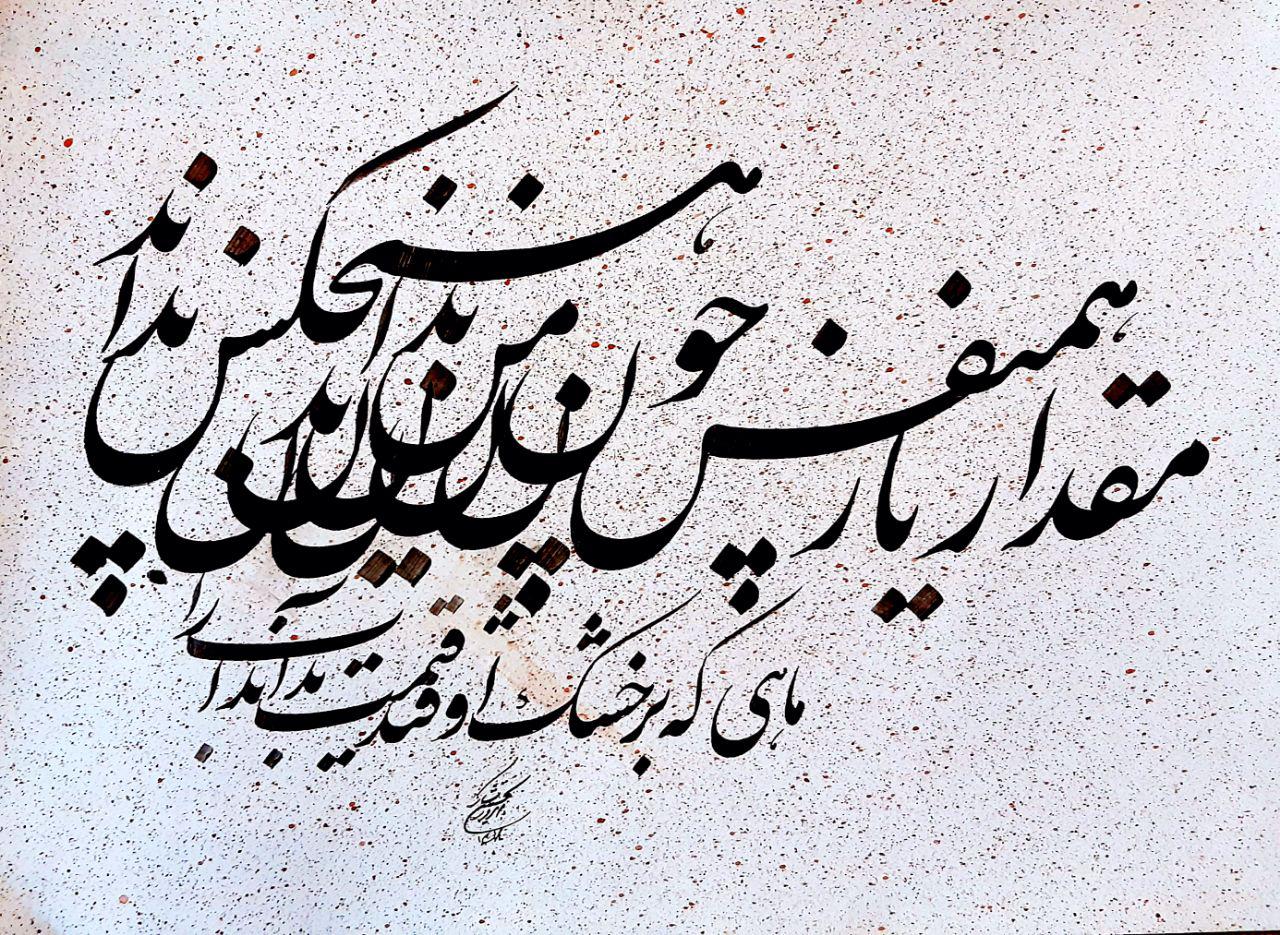 مقدار یار همنفس چون من نداند هیچکس
ماهی که بر خشک اوفتد قیمت بداند آب را